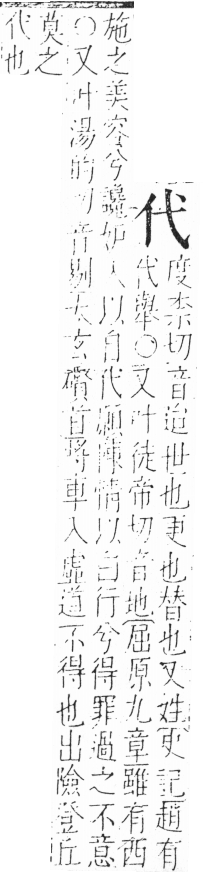 代
度柰切音逮世也更也替也又姓史記趙有
代舉○又叶徒帝切音地屈原九章雖有西
施之美容兮讒妬入以自代願陳情以白行兮得罪過之不意
○又叶湯的切音剔太玄礥首將車入虛道不得也出險登丘
莫之
代也